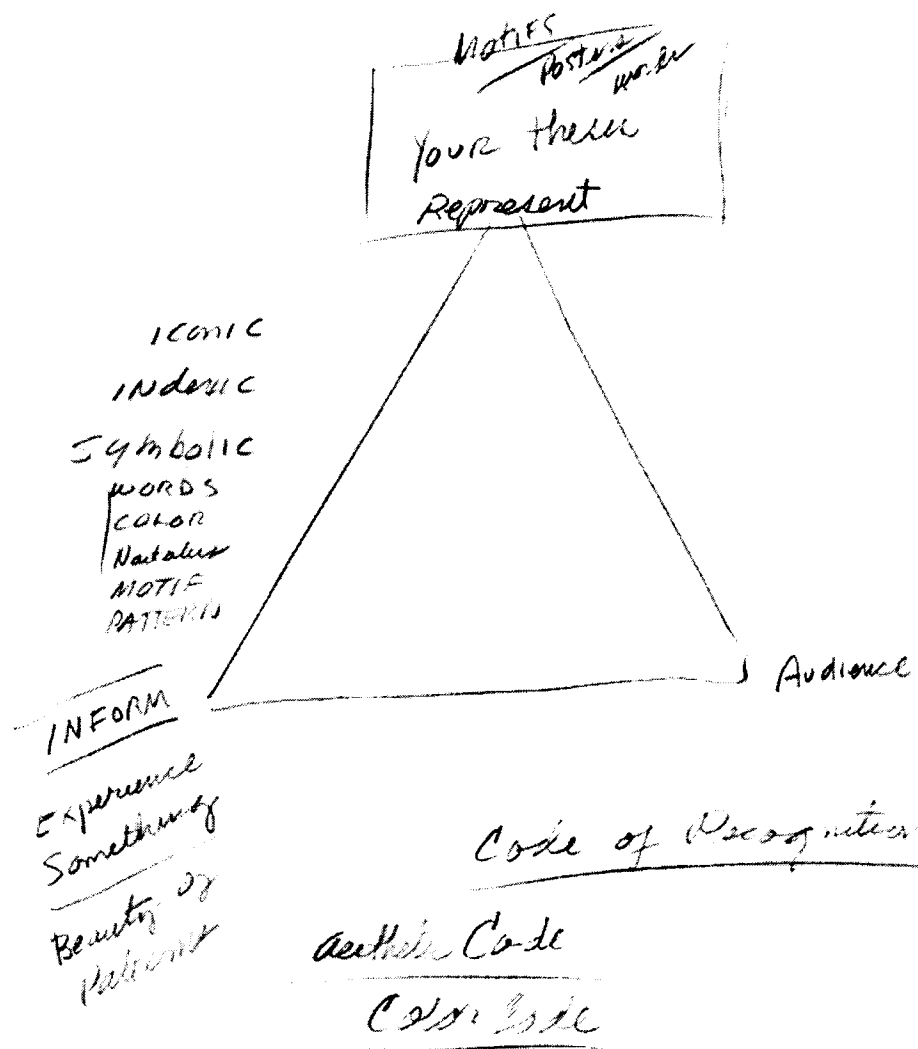 MOTIFS
Posters
YOUR thesis
Represent
ICONIC
INdexic
Symbolic
WORDS
COLOR
MOTIF
PATTERNS
INFORM
Audience
Experience
Something
Beauty of
Patterns
Code of Recognition
aesthetic Code
Color Code